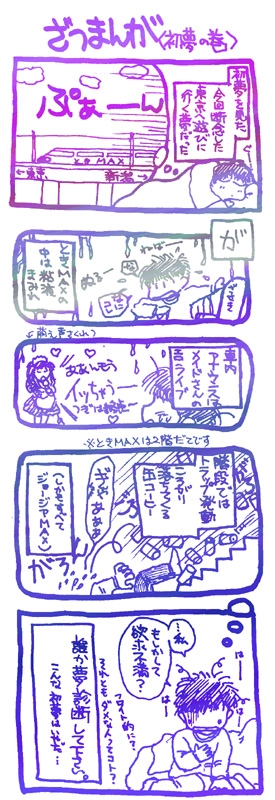 ざつまんが〈初夢の巻〉
初夢を見た。
今回断念した
東京へ遊びに
行く夢だった
ぷぁーん
ときMAX
←東京
新潟→
が
ときMAXの
中は粘液
まみれ
ぬるー
←萌え声さくれつ
車内
アナウンスは
メイドさんの
生ライブ
まあんもなく
イッちゃうー
つぎは終点〜
※ときMAXは2階だてです
階段では
トラップ発動
ころがり
落ちてくる
缶コーヒー
(しかもすべて
ジョージアMAX)
ぎゃあああ
がらん
…私
もしかして
欲求不満?
フロイト的に?
それともダメな人ってコト?
はー
はー
誰か夢診断して下さい。
こんな初夢はいやだ…